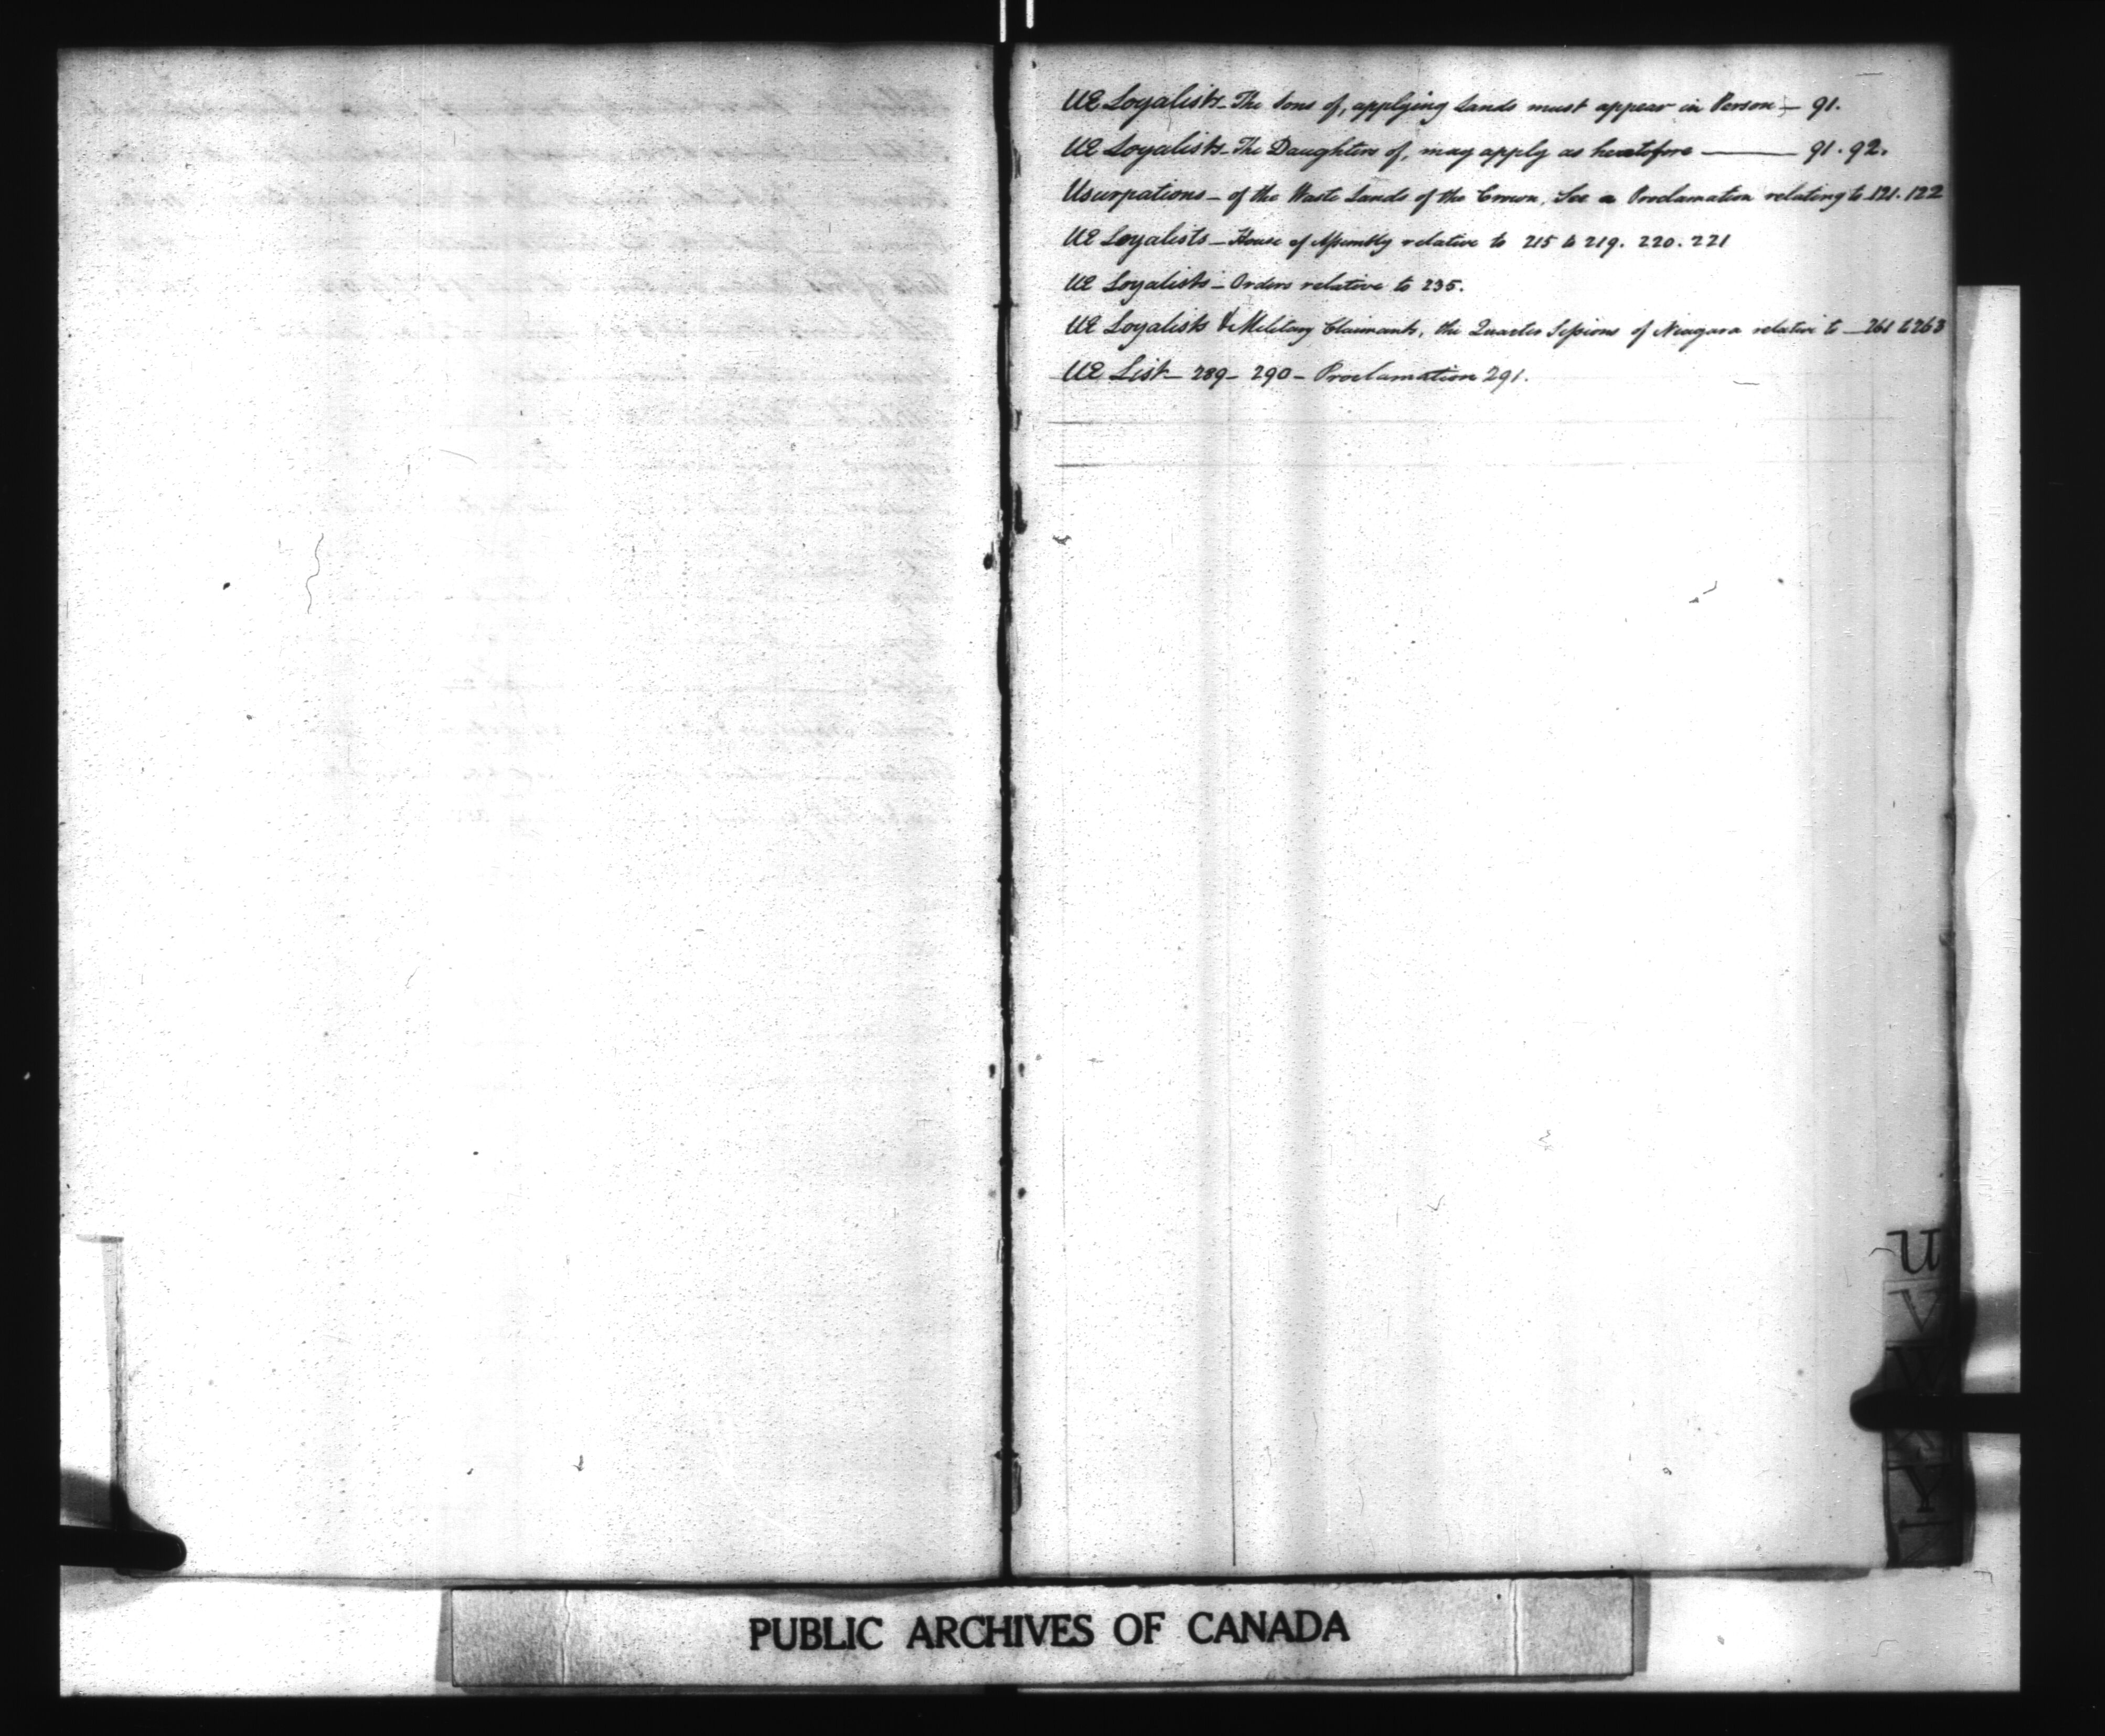 UE Loyalists - The Sons of, applying Lands must appear in Person - 91.
UE Loyalists - The Daughters of, may apply as heretofore ——— 91. 92.
Usurpations - of the Waste Lands of the Crown, See a Proclamation relating to 121. 122
UE Loyalists - House of Assembly relative to 215 to 219. 220. 221
UE Loyalists - Orders relative to 235.
UE Loyalists & Military Claimants, the Quarter Sessions of Niagara relative to - 261 to 263
UE List - 289 - 290 - Proclamation 291.
U
V
W
X
Y
PUBLIC ARCHIVES OF CANADA